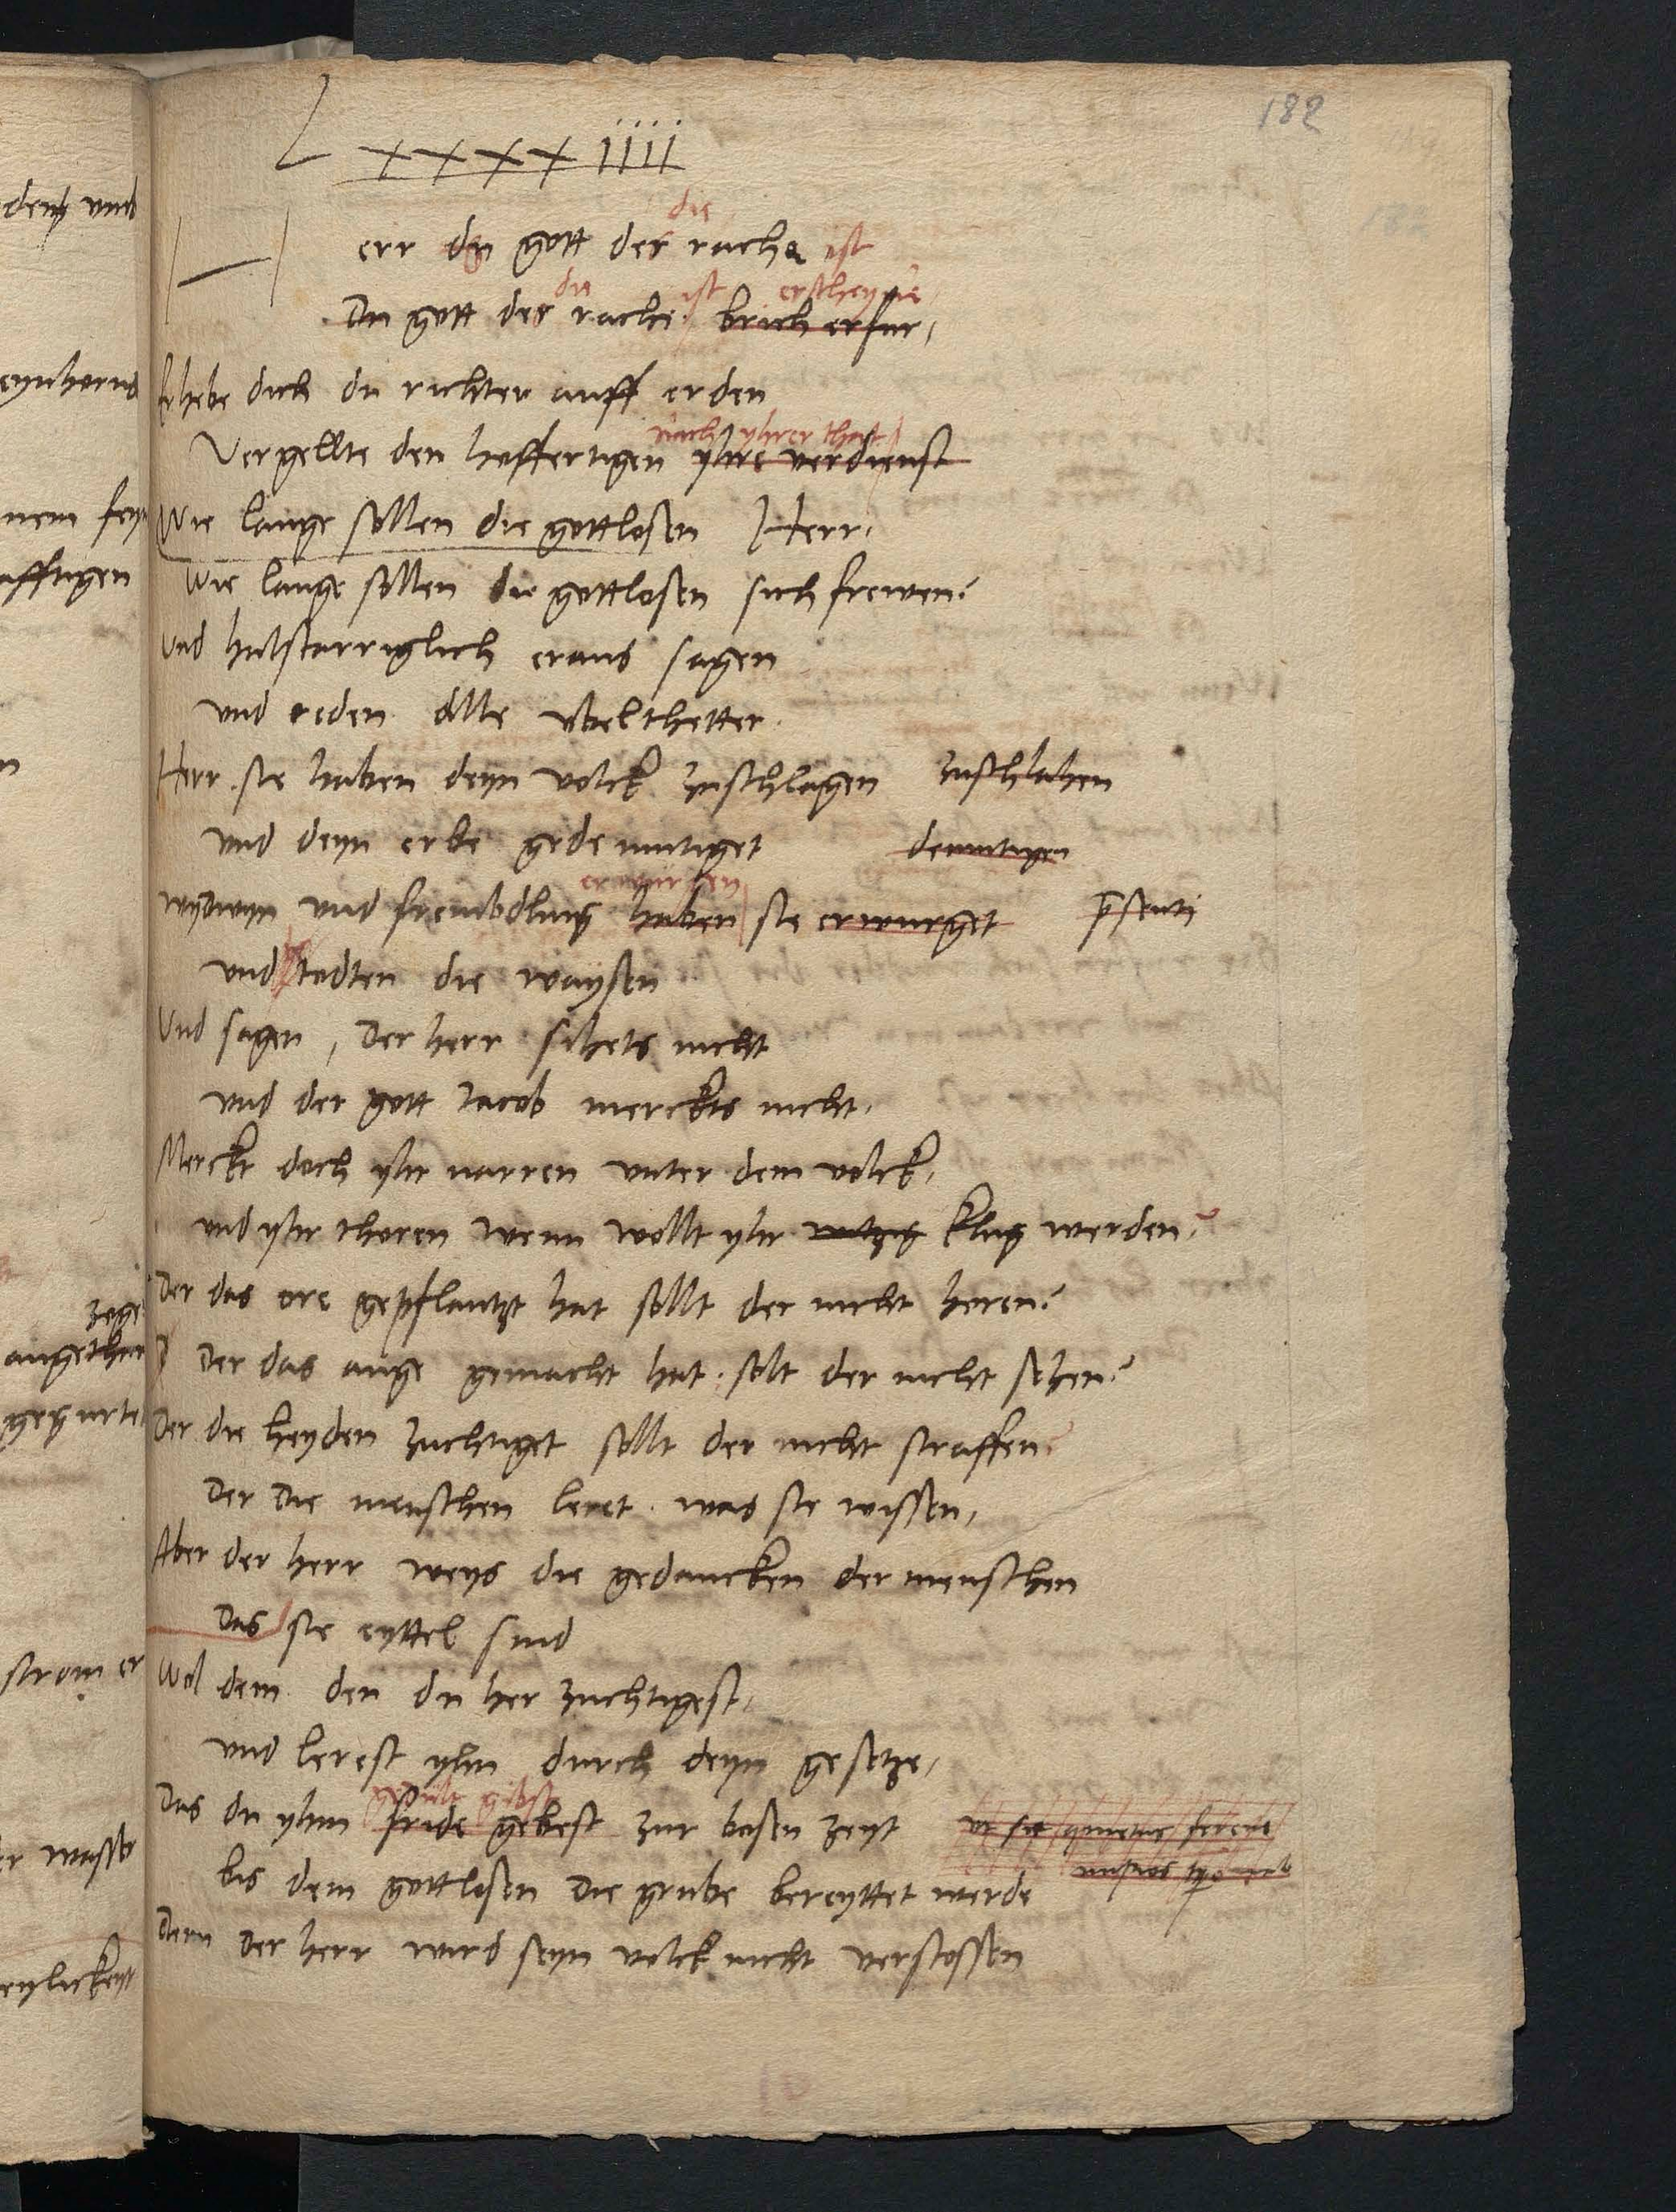 182
L XXXX iiii
die
H err du gott des rache ist
die ist erscheyne
Du gott des rache brich erfur,
Erhebe dich du richter auff erden
nach yhrer that
Vergellte den hoffertigen yhre verdienst
Wie lange sollen die gottlosen Herr,
Wie lange sollen die gottlosen sich frewen?
Und halstarriglich eraus sagen
und reden alle ubelthetter.
Herr sie haben deyn volck zuschlagen zuschlahen
und deyn erbe gedemutiget demutigen
erwurgen
wydwyn und frembdling haben sie erwurget
und todten die waysen
Und sagen, Der herr sihets nicht
und der gott Jacob merckts nicht.
Merckt doch yhr narren unter dem volck,
und yhr thoren wenn wollt yhr witzig klug werden?
Der das ore gepflantzt hat sollt der nicht horen?
Der das auge gemacht hat, solt der nicht sehen?
Der die heyden zuchtiget sollt der nicht straffen
Der die menschen leret was sie wissen,
Aber der herr weys die gedancken der menschen
Das sie eyttel sind
Wol dem den du her zuchtigest,
und lerest yhn durch deyn gesetze,
gedult gibst
Das du yhm fride gebest zur bosen zeyt
bis dem gottlosen die grube bereyttet werde
Denn der herr wird seyn volck nicht verstossen